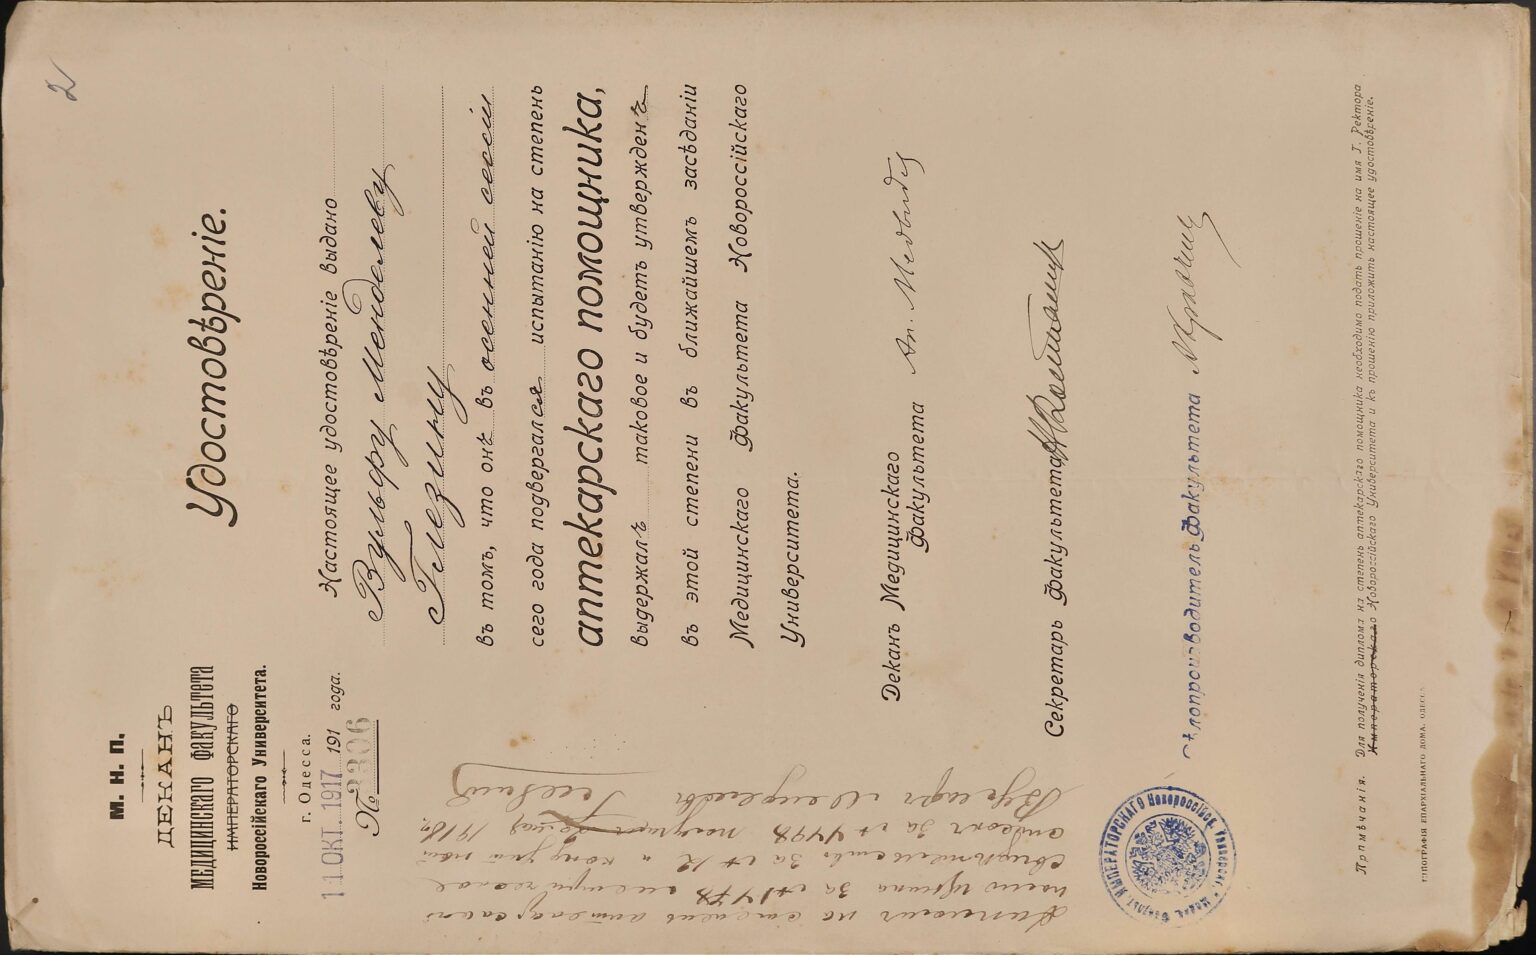 2
М. Н. П.
ДЕКАНЪ
МЕДИЦИНСКАГО ФАКУЛЬТЕТА
ИМПЕРАТОРСКАГО
Новороссійскаго Университета.
г. Одесса.
11 ОКТ. 1917 191 года.
№ 2306
Удостовѣреніе.
Настоящее удостовѣреніе выдано
Вульфу Менделеву
Глезину
въ томъ, что онъ въ осенней сессіи
сего года подвергался испытанію на степень
аптекарскаго помощника,
выдержалъ таковое и будетъ утвержденъ
въ этой степени въ ближайшемъ засѣданіи
Медицинскаго Факультета Новороссійскаго
Университета.
Деканъ Медицинскаго
Факультета
Секретарь Факультета
Дѣлопроизводитель Факультета
Дипломъ на степень аптекарскаго
за № 1478
за № 12 и копу
за № 4498 получилъ 1918 г.
Вульфъ Менделевъ Глезинъ
ИМПЕРАТОРСКАГО Новороссійск. Универс.
Примѣчанія. Для полученія диплома на степень аптекарскаго помощника необходимо подать прошеніе на имя Г. Ректора
Императорскаго Новороссійскаго Университета и къ прошенію приложить настоящее удостовѣреніе.
ТИПОГРАФІЯ ЕПАРХІАЛЬНАГО ДОМА, ОДЕССА